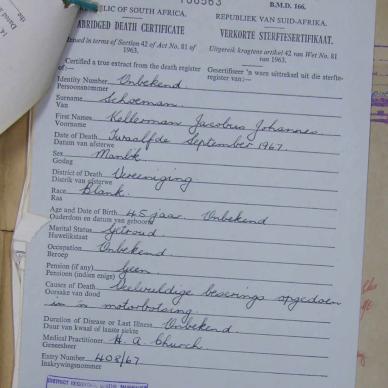 B.M.D. 166.
IC OF SOUTH AFRICA.
REPUBLIEK VAN SUID-AFRIKA.
ABRIDGED DEATH CERTIFICATE
VERKORTE STERFTESERTIFIKAAT.
Issued in terms of Section 42 of Act No. 81 of 1963.
Uitgereik kragtens artikel 42 van Wet No. 81 van 1963.
Certified a true extract from the death register of:—
Gesertifiseer 'n ware uittreksel uit die sterfte-register van:—
Identity Number Onbekend
Persoonsnommer
Surname Schoeman
Van
First Names Kellerman Jacobus Johannes
Voorname
Date of Death Twaalfde September 1967
Datum van afsterwe
Sex Manlik
Geslag
District of Death Vereeniging
Distrik van afsterwe
Race Blank
Ras
Age and Date of Birth 45 jaar. Onbekend
Ouderdom en datum van geboorte
Marital Status Getroud
Huwelikstaat
Occupation Onbekend
Beroep
Pension (if any) Geen
Pensioen (indien enige)
Causes of Death Veelvuldige beserings opgedoen
Oorsake van dood in 'n motorbotsing
Duration of Disease or Last Illness Onbekend
Duur van kwaal of laaste siekte
Medical Practitioner H. A. Church
Geneesheer
Entry Number 408/67
Inskrywingsnommer